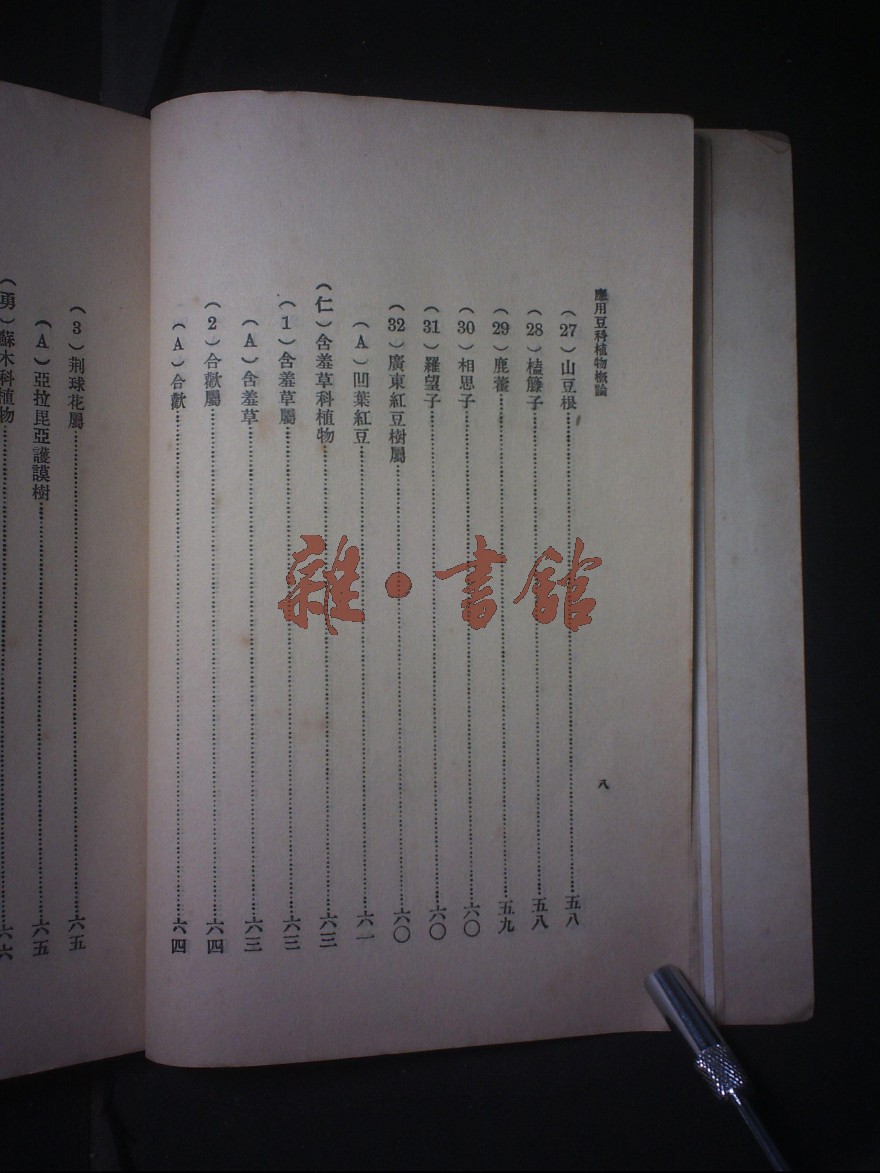 應用豆科植物概論
八
(27)山豆根……五八
(28)榼籐子……五八
(29)鹿藿……五九
(30)相思子……六〇
(31)羅望子……六〇
(32)廣東紅豆樹屬……六〇
(A)凹葉紅豆……六一
(仁)含羞草科植物……六三
(1)含羞草屬……六三
(A)含羞草……六三
(2)合歡屬……六四
(A)合歡……六四
(3)荆球花屬……六五
(A)亞拉毘亞護謨樹……六五
(勇)蘇木科植物……六六
雜·書館